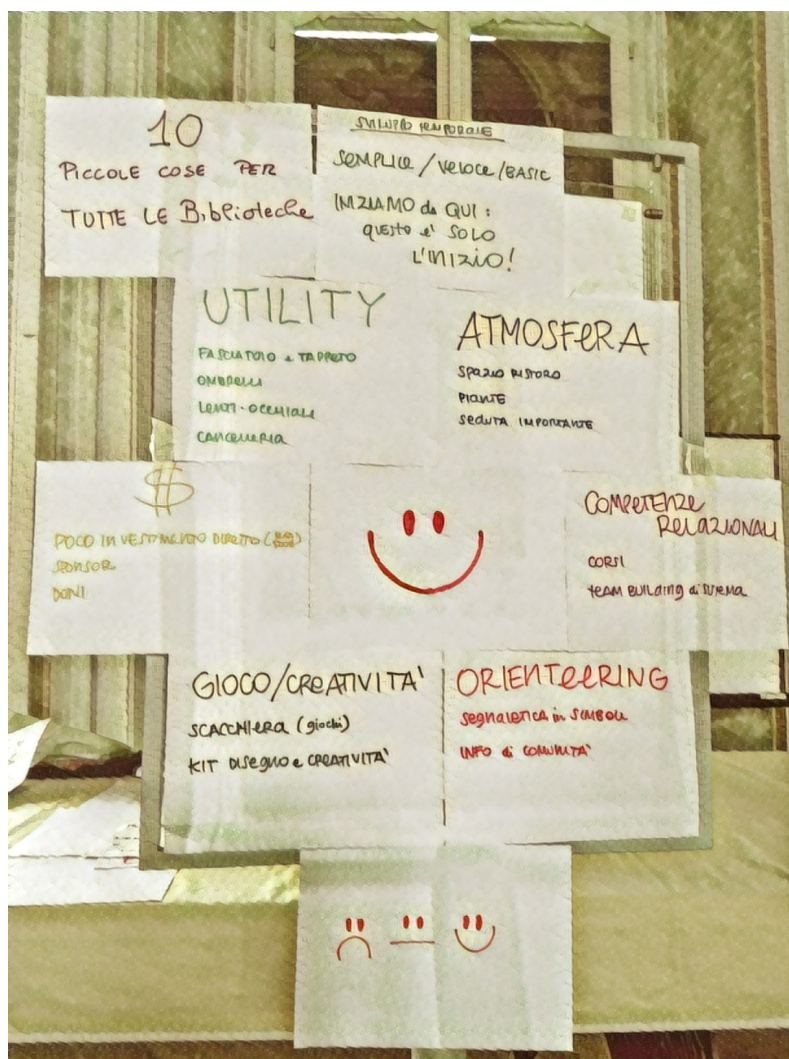 10
PICCOLE COSE PER
TUTTE LE Biblioteche
SVILUPPO TEMPORALE
SEMPLICE / VELOCE / BASIC
INIZIAMO da QUI :
QUESTO e' SOLO
L'INIZIO!
UTILITY
FASCIATOIO e TAPPETO
OMBRELLI
LENTI - OCCHIALI
CANCELLERIA
ATMOSFERA
SPAZIO RISTORO
PIANTE
SEDUTA IMPORTANTE
$
POCO INVESTIMENTO DIRETTO
SPONSOR
DONI
COMPETENZE
RELAZIONALI
CORSI
TEAM BUILDING di SISTEMA
GIOCO/CREATIVITA'
SCACCHIERA (giochi)
KIT DISEGNO e CREATIVITA'
ORIENTEERING
SEGNALETICA in SIMBOLI
INFO di COMUNITA'